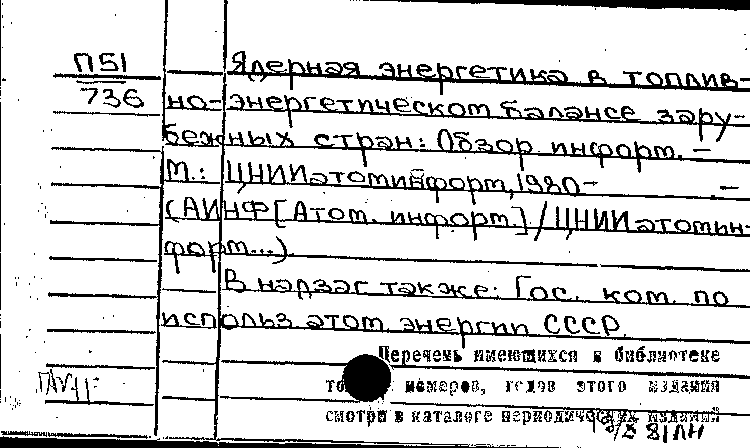 П51
736
Ядерная энергетика в топлив-
но-энергетическом балансе зару-
бежных стран: Обзор. информ. –
М.: ЦНИИатоминформ, 1980– . –
(АИНФ [Атом. информ.] / ЦНИИатомин-
форм...)
В надзаг также: Гос. ком. по
использ атом. энергии СССР.
Перечень имеющихся в библиотеке
номеров, годов этого издания
смотри в каталоге периодических изданий